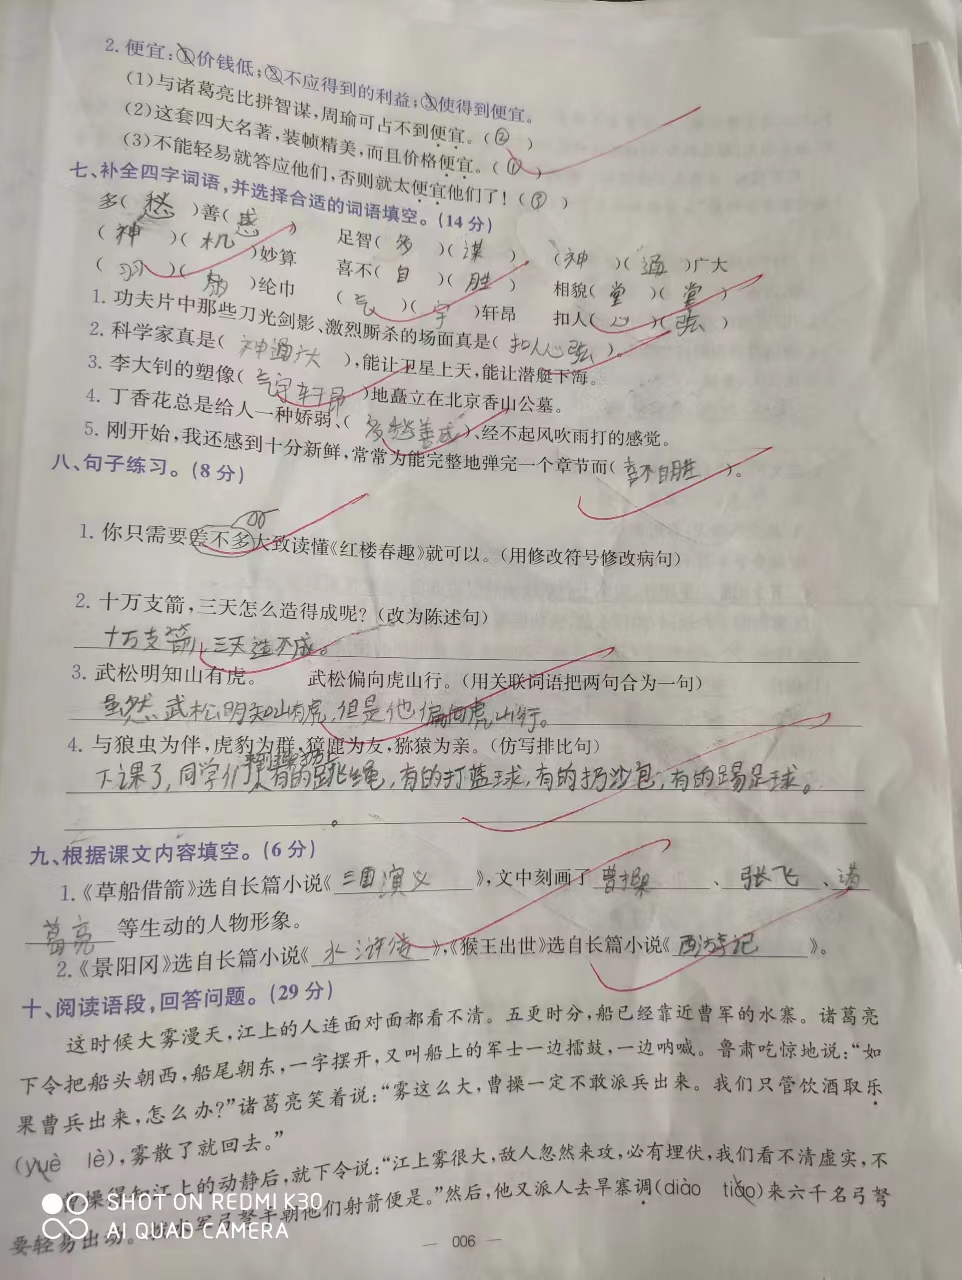 2. 便宜:①价钱低;②不应得到的利益;③使得到便宜。
(1)与诸葛亮比拼智谋,周瑜可占不到便宜。(②)
(2)这套四大名著,装帧精美,而且价格便宜。(①)
(3)不能轻易就答应他们,否则就太便宜他们了!(③)
七、补全四字词语,并选择合适的词语填空。(14分)
多(愁)善(感) 足智(多)(谋) (神)(通)广大
(神)(机)妙算 喜不(自)(胜) 相貌(堂)(堂)
(羽)(扇)纶巾 (气)(宇)轩昂 扣人(心)(弦)
1. 功夫片中那些刀光剑影、激烈厮杀的场面真是(扣人心弦)。
2. 科学家真是(神通广大),能让卫星上天,能让潜艇下海。
3. 李大钊的塑像(气宇轩昂)地矗立在北京香山公墓。
4. 丁香花总是给人一种娇弱、(多愁善感)、经不起风吹雨打的感觉。
5. 刚开始,我还感到十分新鲜,常常为能完整地弹完一个章节而(喜不自胜)。
八、句子练习。(8分)
1. 你只需要差不多大致读懂《红楼春趣》就可以。(用修改符号修改病句)
2. 十万支箭,三天怎么造得成呢?(改为陈述句)
十万支箭,三天造不成。
3. 武松明知山有虎。 武松偏向虎山行。(用关联词语把两句合为一句)
虽然武松明知山有虎,但是他偏向虎山行。
4. 与狼虫为伴,虎豹为群,獐鹿为友,猕猿为亲。(仿写排比句)
下课了,同学们有的跳绳,有的打蓝球,有的扔沙包,有的踢足球。
九、根据课文内容填空。(6分)
1.《草船借箭》选自长篇小说《三国演义》,文中刻画了曹操、张飞、诸
葛亮等生动的人物形象。
2.《景阳冈》选自长篇小说《水浒传》,《猴王出世》选自长篇小说《西游记》。
十、阅读语段,回答问题。(29分)
这时候大雾漫天,江上的人连面对面都看不清。五更时分,船已经靠近曹军的水寨。诸葛亮
下令把船头朝西,船尾朝东,一字摆开,又叫船上的军士一边擂鼓,一边呐喊。鲁肃吃惊地说:“如
果曹兵出来,怎么办?”诸葛亮笑着说:“雾这么大,曹操一定不敢派兵出来。我们只管饮酒取乐
(yuè lè),雾散了就回去。”
曹操得知江上的动静后,就下令说:“江上雾很大,敌人忽然来攻,必有埋伏,我们看不清虚实,不
要轻易出动。军弓弩手朝他们射箭便是。”然后,他又派人去旱寨调(diào tiáo)来六千名弓弩
SHOT ON REDMI K30
AI QUAD CAMERA
006